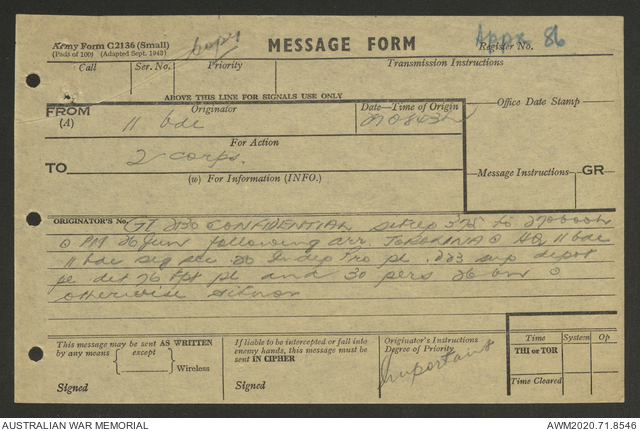 Army Form C2136 (Small)
(Pads of 100) (Adapted Sept. 1943)
copy
MESSAGE FORM
Appx 86
Register No.
Call Ser. No. Priority Transmission Instructions
ABOVE THIS LINE FOR SIGNALS USE ONLY
FROM Originator Date—Time of Origin Office Date Stamp
(A) 11 bde 270843
For Action
TO 2 corps.
(w) For Information (INFO.)
Message Instructions GR
ORIGINATOR'S No. GT CONFIDENTIAL sitrep 375 to 270600
PM 26 Jun following arr TOROKINA HQ 11 bde
11 bde sig sec . Indep Tro pl . 223 sup depot
pl det 26 Fpt pl and 30 pers 26 bn
otherwise
This message may be sent AS WRITTEN
by any means except
Wireless
Signed
If liable to be intercepted or fall into
enemy hands, this message must be
sent IN CIPHER
Signed
Originator's Instructions
Degree of Priority
Important
Time System Op
THI or TOR
Time Cleared
AUSTRALIAN WAR MEMORIAL AWM2020.71.8546